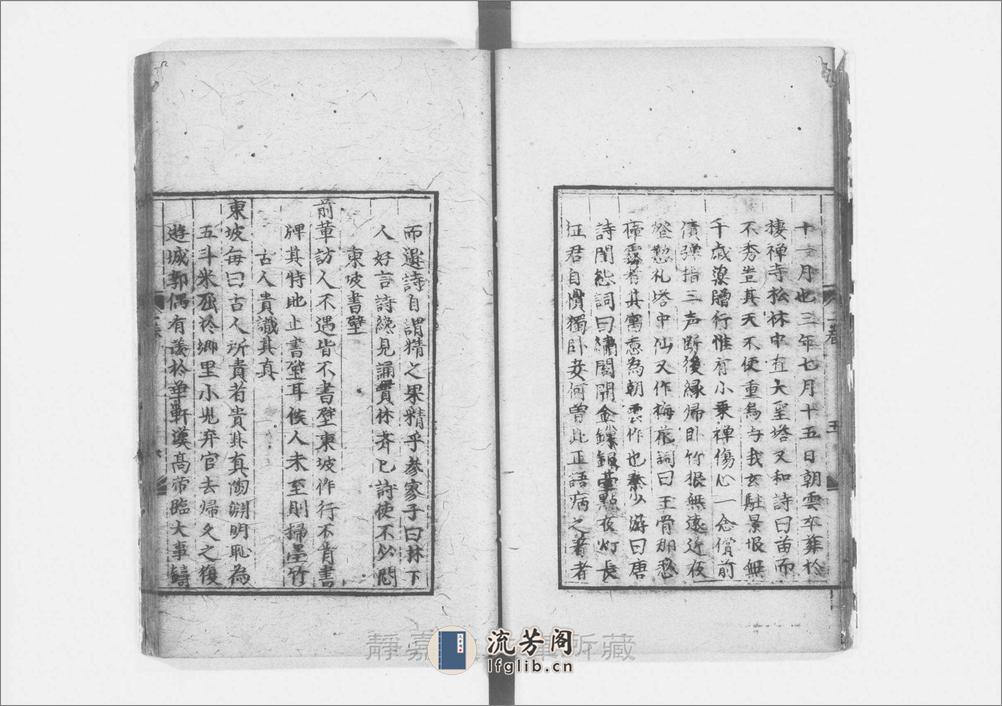 十一月也三年七月十五日朝雲卒葬於
棲禪寺松林中直大聖塔又和詩曰苗而
不秀豈其天不使童烏与我玄駐景恨無
千歲藥贈行惟有小乘禪傷心一念償前
債彈指三声斷後緣歸卧竹根無遠近夜
燈懃礼塔中仙又作梅花詞曰玉骨那愁
瘴霧者其寓意為朝雲作也秦少游曰唐
詩閨怨詞曰繡閣開金鎖銀臺點夜灯長
征君自慣獨卧妾何曽此正語病之著者
而選詩自謂精之果精乎參寥子曰林下
人好言詩纔見誦貫休齊己詩便不必問
東坡書壁
前輩訪人不遇皆不書壁東坡作行不肯書
牌其特地止書壁耳候人未至則掃墨竹
古人貴識其真
東坡每曰古人所貴者貴其真陶淵明恥為
五斗米屈於鄉里小兒弃官去歸久之復
遊城郭偶有羨於華軒漢高帝臨大事鑄
五
靜嘉 所藏
流芳阁
lfglib.cn